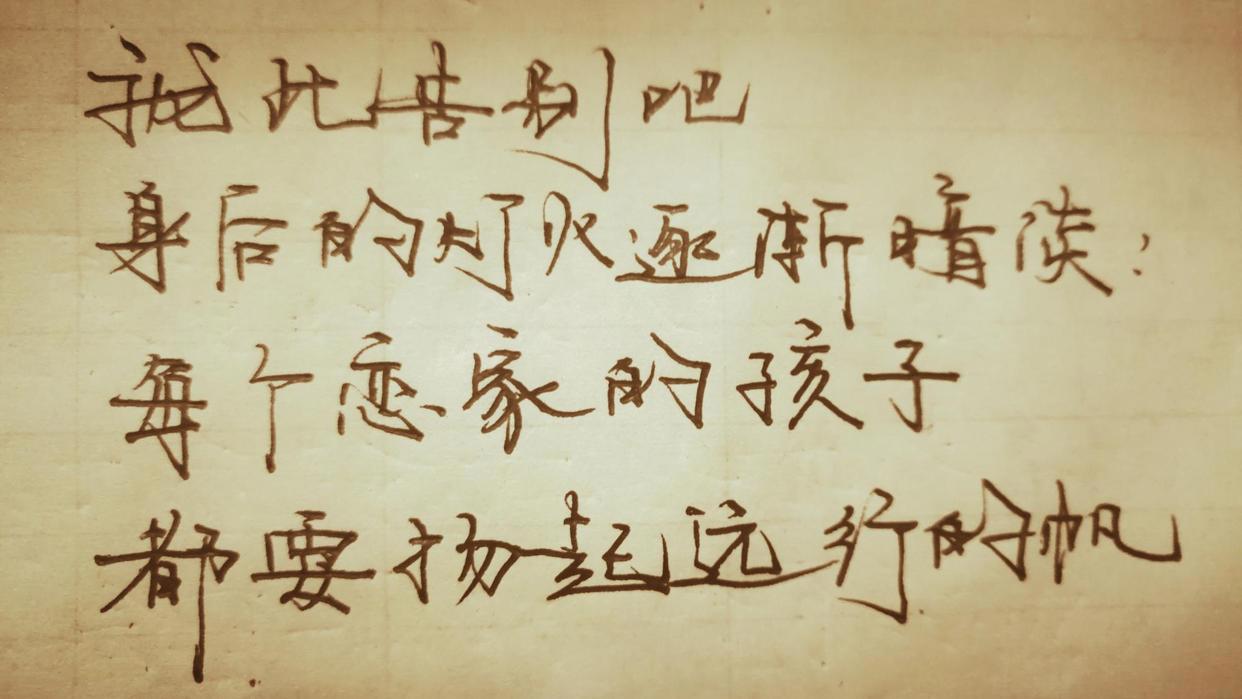 就此告别吧
身后的灯火逐渐暗淡；
每个恋家的孩子
都要扬起远行的帆